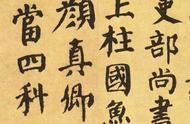 吏部尚書
上柱國魯
顏真卿
當四科